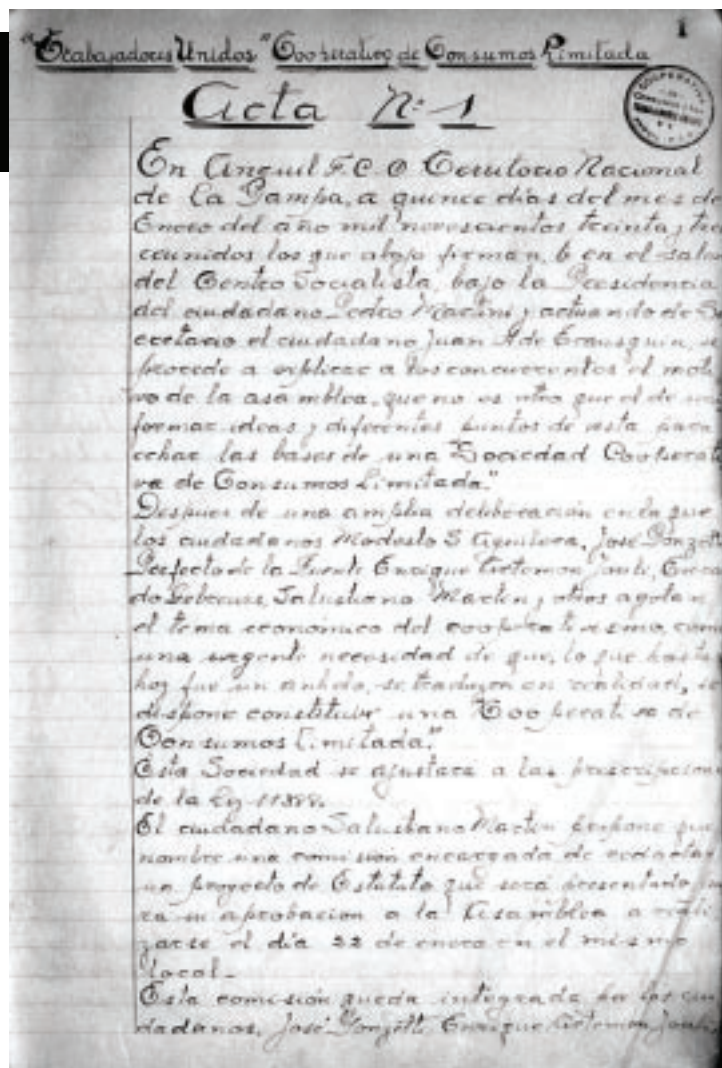 1
"Trabajadores Unidos" Cooperativa de Consumos Limitada
Acta Nº 1
COOPERATIVA
En Anguil F.C.O Territorio Nacional
de La Pampa, a quince días del mes de
Enero del año mil novecientos treinta y tres
reunidos los que abajo firman, en el salon
del Centro Socialista, bajo la Presidencia
del ciudadano Pedro Martini y actuando de Se
cretario el ciudadano Juan A de Eransquin, se
procede a esplicar a los concurrentos el moti
vo de la asamblea, que no es otro que el de
formar ideas y diferentes puntos de vista para
echar las bases de una "Sociedad Cooperati
va de Consumos Limitada."
Despues de una amplia deliberación en la que
los ciudadanos Modesto S Aguilera, José Gonzetti
Perfecto de la Fuente Enrique Artemon
Salustiano Martin y otros agotan
el tema económico del cooperativismo, como
una urgente necesidad de que, lo que hasta
hoy fue un anhelo, se traduzca en realidad, se
dispone constituir una "Cooperativa de
Consumos Limitada."
Esta Sociedad se ajustara a las prescripciones
de la Ley 11388.
El ciudadano Salustiano Martin propone que
nombre una comisión encargada de redactar
un proyecto de Estatuto que será presentado pa
ra su aprobacion a la Asamblea a reali
zarse el día 22 de enero en el mismo
local.
Esta comisión queda integrada por los ciu
dadanos, José Gonzetti Enrique Artemon